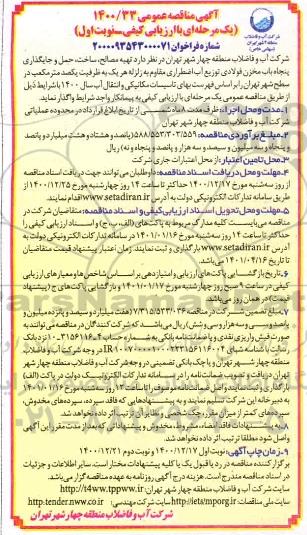 شرکت آب و فاضلاب
منطقه ۴ شهر تهران
(سهامی خاص)
آگهی مناقصه عمومی ۱۴۰۰/۳۳
(یک مرحله‌ای با ارزیابی کیفی _ نوبت اول)
شماره فراخوان ۲۰۰۰۰۹۳۵۴۳۰۰۰۰۷۱
شرکت آب و فاضلاب منطقه چهار شهر تهران در نظر دارد تهیه مصالح، ساخت، حمل و جایگذاری
پنجاه باب مخزن فولادی توزیع آب اضطراری مقاوم به زلزله هر یک به ظرفیت یکصد مترمکعب در
سطح شهر تهران را بر اساس فهرست بهای تاسیسات مکانیکی و انتقال آب سال ۱۴۰۰ با شرایط ذیل
از طریق مناقصه عمومی یک مرحله‌ای با ارزیابی کیفی به پیمانکار واجد شرایط واگذار نماید.
۱_مدت و محل اجرا: ظرف مدت هفتاد شمسی از تاریخ ابلاغ قرارداد در محدوده عملیاتی
شرکت آب و فاضلاب منطقه چهار شهر تهران.
۲_مبلغ برآوردی مناقصه: ۵۸۸/۵۵۳/۳۰۳/۵۵۹ (پانصد و هشتاد و هشت میلیارد و پانصد
و پنجاه و سه میلیون و سیصد و سه هزار و پانصد و پنجاه و نه) ریال
۳_محل تامین اعتبار: از محل اعتبارات جاری شرکت
۴_مهلت و محل دریافت اسناد مناقصه: داوطلبان می‌توانند جهت دریافت اسناد مناقصه
از روز سه‌شنبه مورخ ۱۴۰۰/۱۲/۱۷ حداکثر تا ساعت ۱۴ روز چهارشنبه مورخ ۱۴۰۰/۱۲/۲۵ از
طریق سامانه تدارکات الکترونیکی دولت به آدرس www.setadiran.ir اقدام نمایند.
۵_مهلت و محل تحویل اسناد ارزیابی کیفی و اسناد مناقصه: متقاضیان شرکت در
مناقصه می‌بایست، کلیه مدارک مربوط به پاکت‌های (الف، ب، ج) و اسناد ارزیابی کیفی را
حداکثر تا ساعت ۱۴ روز سه‌شنبه مورخ ۱۴۰۱/۰۱/۱۶ در سامانه تدارکات الکترونیکی دولت به
آدرس www.setadiran.ir بارگذاری و ثبت نمایند. زمان اعتبار پیشنهاد قیمت متقاضیان
تا تاریخ ۱۴۰۱/۰۴/۱۶ می‌باشد.
۶_تاریخ بازگشایی پاکت‌های ارزیابی و امتیازدهی بر اساس شاخص‌ها و معیارهای ارزیابی
کیفی در ساعت ۹ صبح روز چهارشنبه مورخ ۱۴۰۱/۰۱/۱۷ و بازگشایی پاکت‌های ج (پیشنهاد
قیمت)، در همان روز می‌باشد.
۷_مبلغ تضمین شرکت در مناقصه ۷/۳۱۵/۵۳۳/۰۳۶ (هفت میلیارد و سیصد و پانزده میلیون و
پانصد و سی و سه هزار و سی و شش) ریال، می‌باشد که شرکت‌کنندگان در مناقصه می‌توانند به
منطقه چهار شهر تهران و یا چک بانکی تضمینی در وجه شرکت آب و فاضلاب منطقه چهار شهر
تهران دریافت و تصویر ضمانت‌نامه را در سامانه تدارکات الکترونیک دولت در پاکت (الف)
بارگذاری و ثبت نمایند و اصل ضمانت‌نامه مذکور را تا ساعت ۱۴ روز سه‌شنبه مورخ ۱۴۰۱/۰۱/۱۶
به دبیرخانه این شرکت تسلیم نمایند و به پیشنهادهایی که فاقد سپرده، سپرده‌های مخدوش،
سپرده‌های کمتر از میزان مقرر، چک شخصی و نظایر آن ترتیب اثر داده نخواهد شد.
۸_به پیشنهادات فاقد امضاء، مشروط، مخدوش و پیشنهاداتی که بعد از مدت مقرر این آگهی
واصل شود مطلقا ترتیب اثر داده نخواهد شد.
۹_زمان چاپ آگهی: نوبت اول ۱۴۰۰/۱۲/۱۷ و نوبت دوم ۱۴۰۰/۱۲/۲۱
برگزار کننده مناقصه در رد یا قبول یک یا کلیه پیشنهادات مختار است. سایر اطلاعات و جزئیات
در اسناد مناقصه مندرج است. هزینه درج آگهی روزنامه به عهده مناقصه‌گزار می‌باشد.
سایت شرکت آب و فاضلاب منطقه چهار شهر تهران: http://t4ww.tppww.ir
سایت ملی مناقصات: http://iets/mporg.ir سایت شرکت مهندسی: http:tender.nww.co.ir
شرکت آب و فاضلاب منطقه چهار شهر تهران